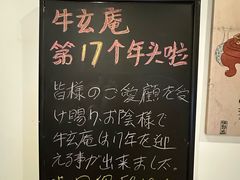 牛玄庵
第17个年头啦
皆様のご愛顧を受
け賜り、お陰様で
牛玄庵は17年を迎
える事が出来ました。